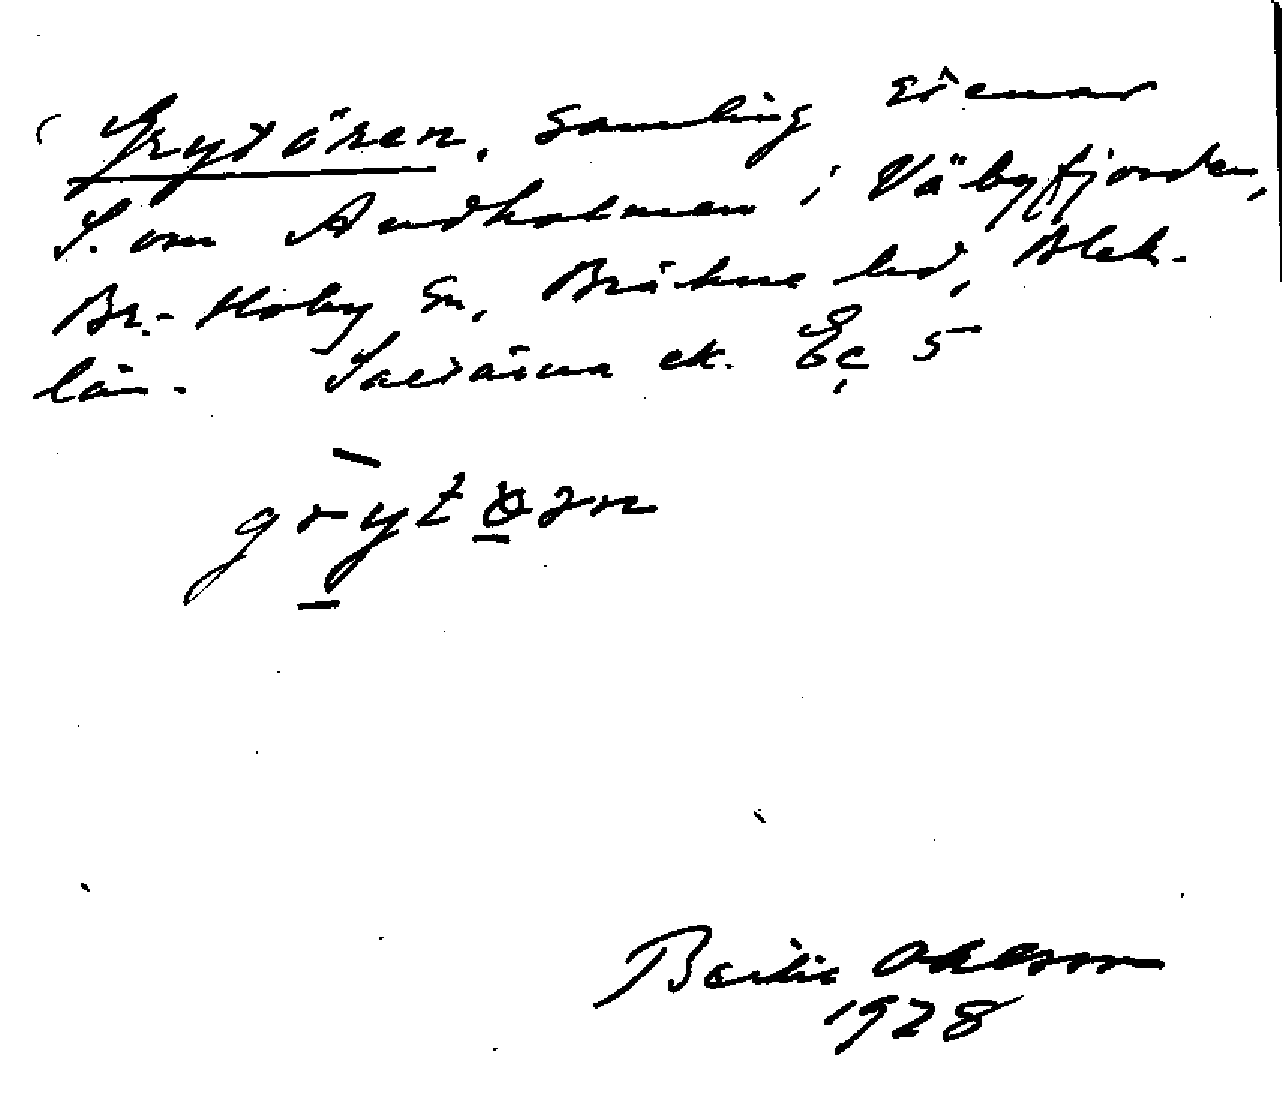 Grytören. Samling stenar
S. om Andholmen i Väbyfjorden,
Br.-Hoby sn, Bräkne hd, Blek.
län. Saltärna ek. Ec 5
grytörn
Bertil Ohlsson
1928